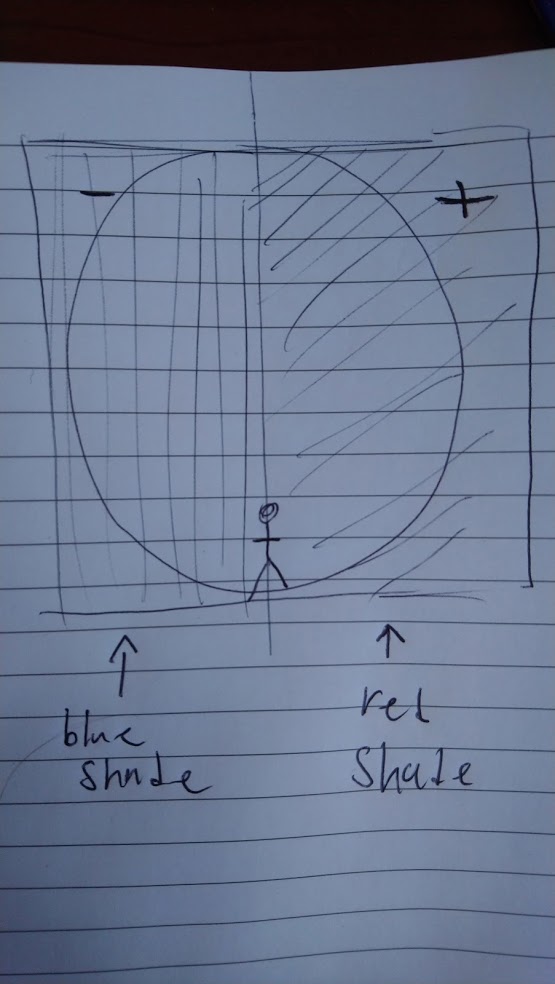 − +
blue
shade
red
Shade